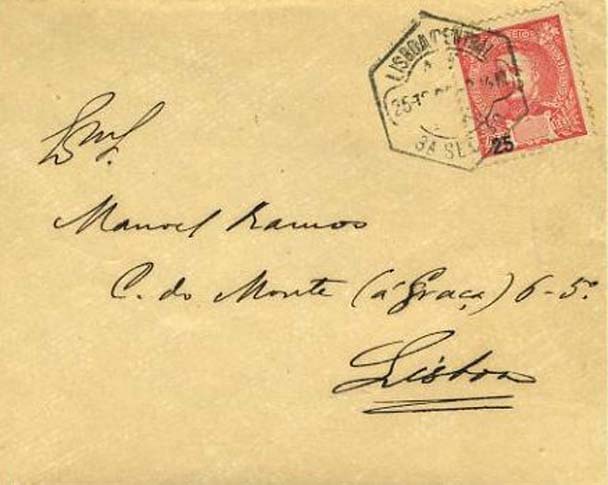 LISBOA CENTRAL
3A SEC
25
Manoel Ramos
C. do Monte (á Graça) 6-5º
Lisboa